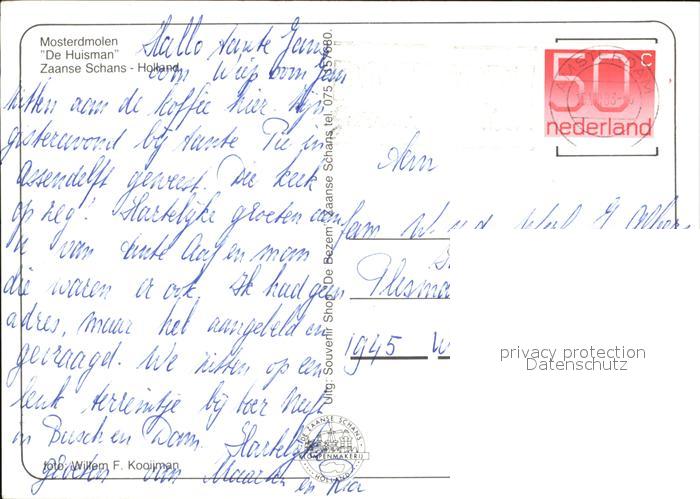 Mosterdmolen
"De Huisman"
Zaanse Schans - Holland
Hallo tante Jans
oom Wiep oom Jan
zitten aan de koffie hier. Zijn
gisteravond bij tante Tie in
Assendelft geweest. Die keek
op zeg! Hartelijke groeten aan
u van tante Aag en mam
die waren er ook. Ik had geen
adres, maar het aangebeld en
gevraagd. We zitten op een
leuk terreintje bij
in Dam. Hartelijke
groeten van Maarten en Ria
foto: Willem F. Kooijman
Uitg: Souvenir Shop "De Bezem" Zaanse Schans tel. 075
DE ZAANSE SCHANS
KLOMPENMAKERIJ
50 c
nederland
Aan
fam
Plesma
1945 W
privacy protection
Datenschutz